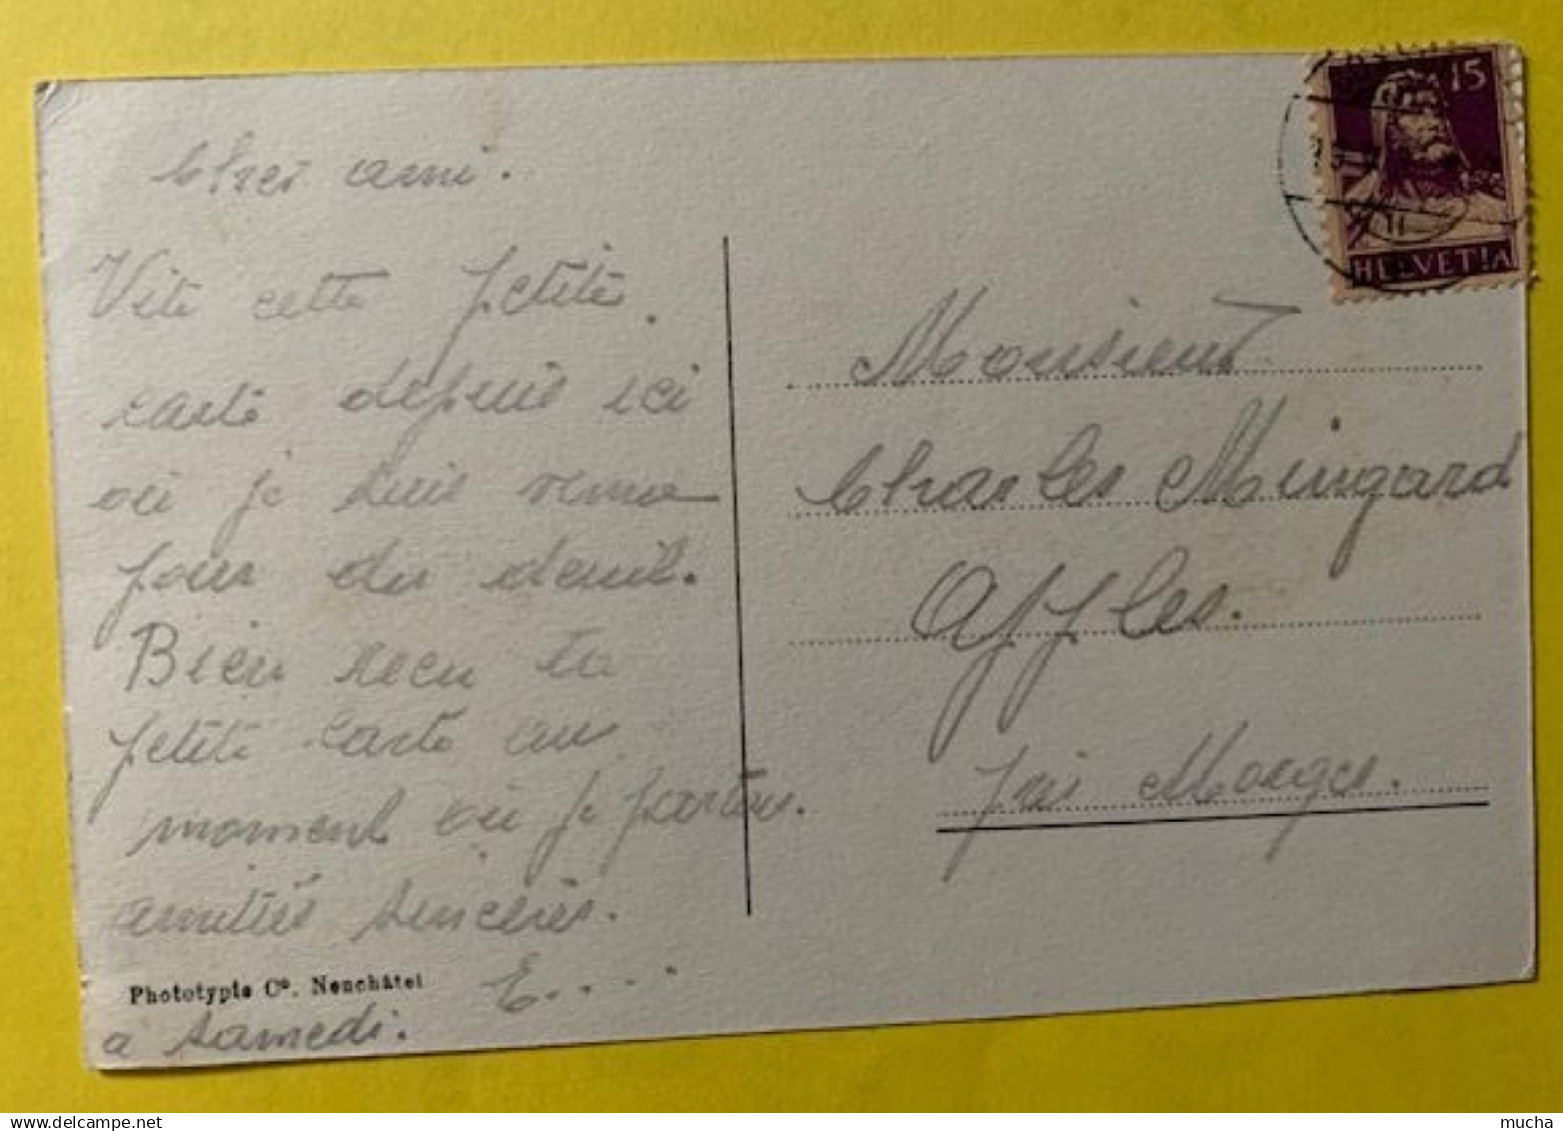 Cher ami.
Vite cette petite
carte depuis ici
où je suis venue
pour du deuil.
Bien recu ta
petite carte au
moment où je partais.
amitiés sincères.
E....
Phototypie Co. Neuchâtel
a samedi.
15
HELVETIA
Monsieur
Charles Mingard
Apples.
s/ Morges.
delcampe.net
mucha